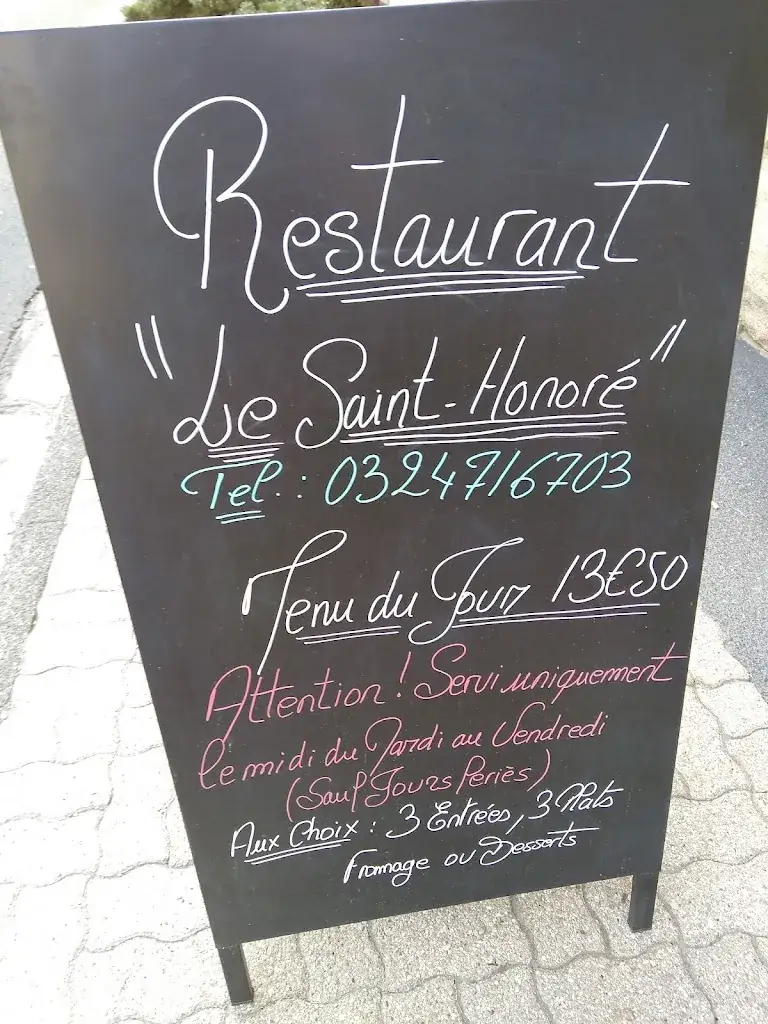 Restaurant
"Le Saint-Honoré"
Tel.: 0324716703
Menu du Jour 13€50
Attention! Servi uniquement
le midi du Mardi au Vendredi
(Sauf Jours fériès)
Aux Choix : 3 Entrées, 3 Plats
Fromage ou Desserts